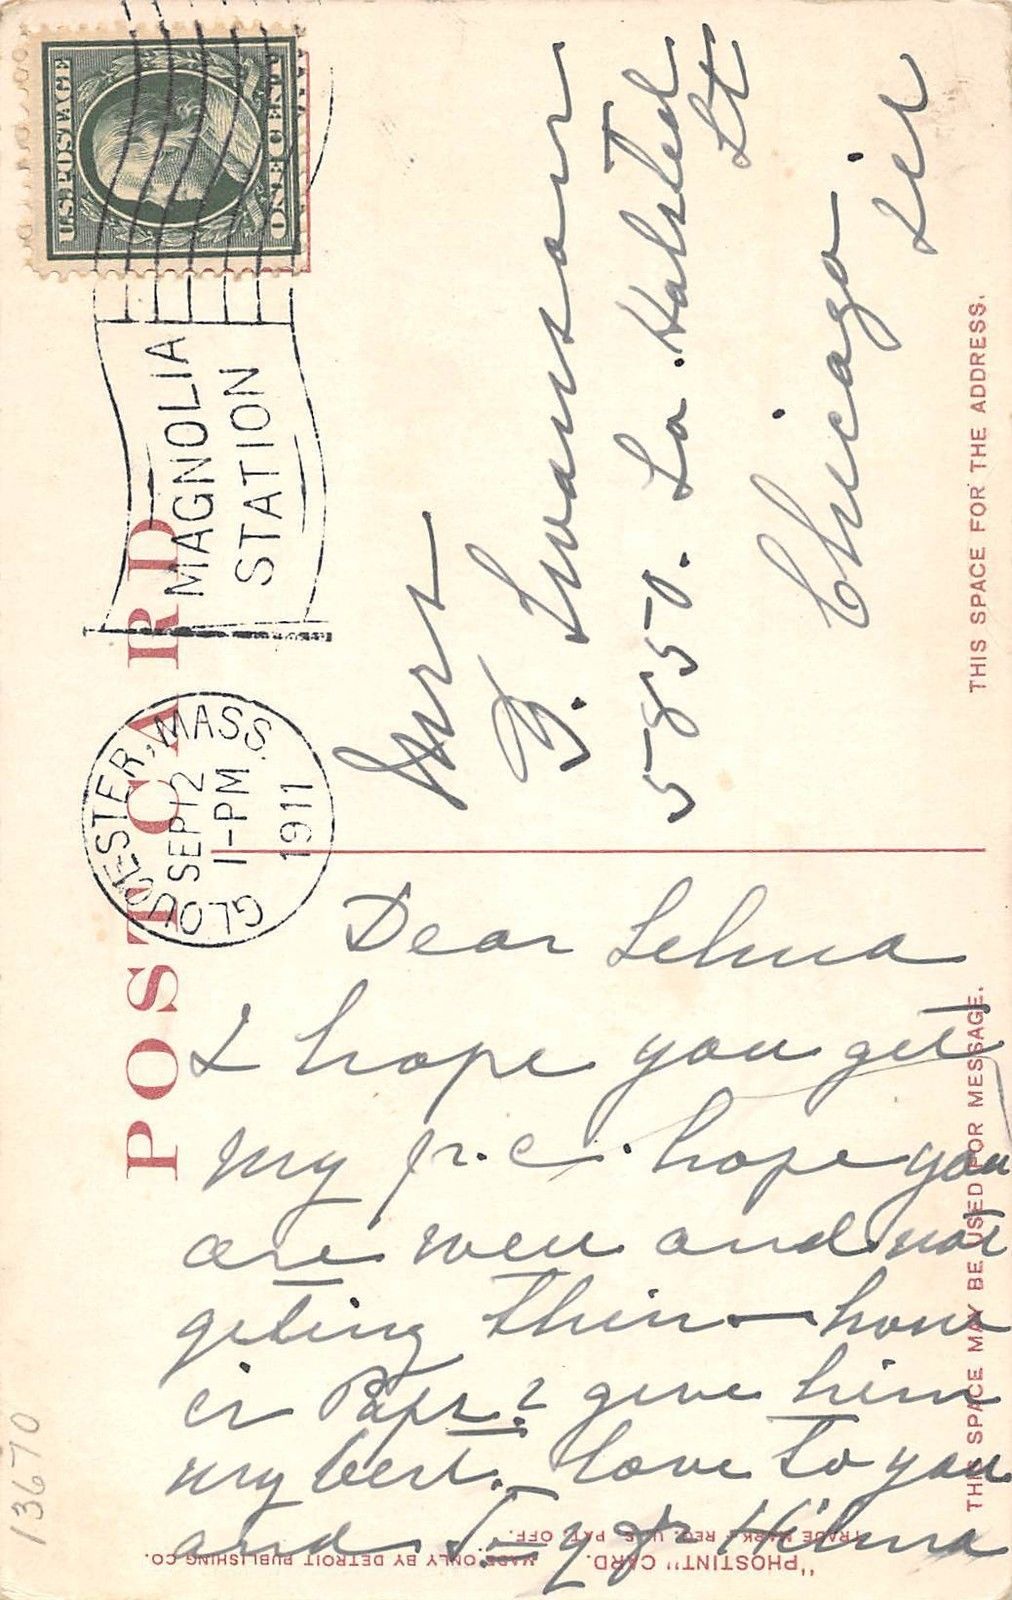 U.S. POSTAGE
ONE CENT
MAGNOLIA
STATION
GLOUCESTER, MASS.
SEP 12
1-PM
1911
POST CARD
Mrs
F. Swanson
5850. So. Halsted
St
Chicago
Ill
THIS SPACE FOR THE ADDRESS.
Dear Selma
I hope you get
my p.c. hope you
are well and not
geting thin — how
is Papa? give him
my best. love to you
and Hilma
THIS SPACE MAY BE USED FOR MESSAGE.
"PHOSTINT" CARD.
TRADE MARK - REG. U.S. PAT. OFF.
MADE ONLY BY DETROIT PUBLISHING CO.
13670